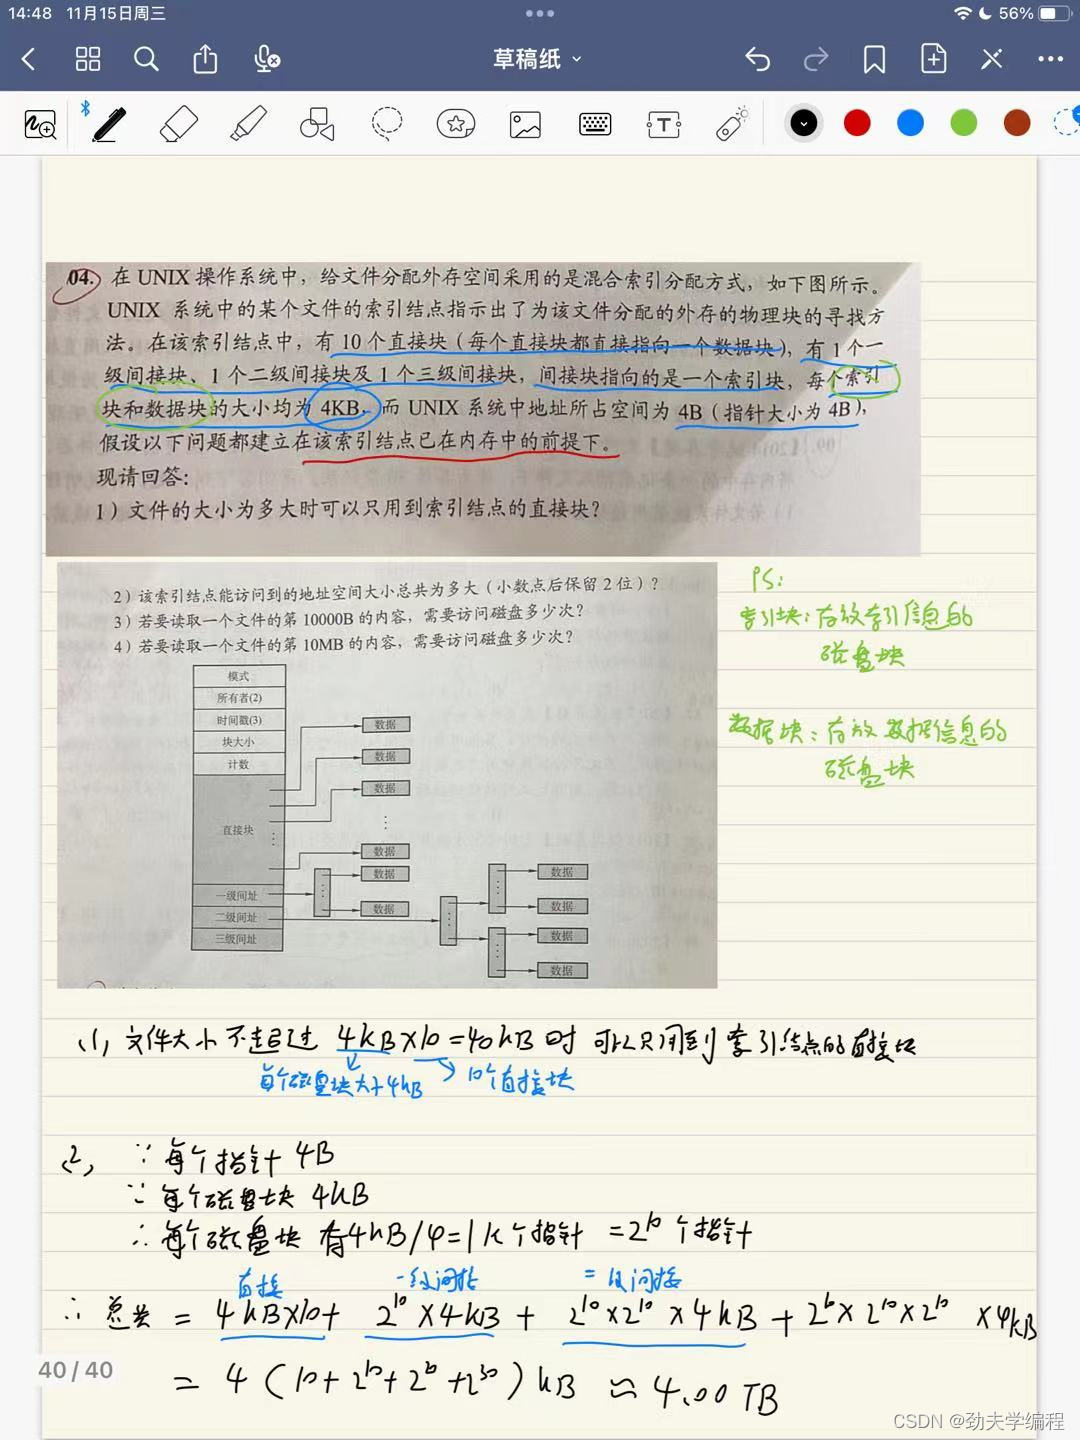 14:48 11月15日周三
56%
草稿纸
04. 在 UNIX 操作系统中，给文件分配外存空间采用的是混合索引分配方式，如下图所示。
UNIX 系统中的某个文件的索引结点指示出了为该文件分配的外存的物理块的寻找方
法。在该索引结点中，有 10 个直接块（每个直接块都直接指向一个数据块），有 1 个一
级间接块、1 个二级间接块及 1 个三级间接块，间接块指向的是一个索引块，每个索引
块和数据块的大小均为 4KB，而 UNIX 系统中地址所占空间为 4B（指针大小为 4B），
假设以下问题都建立在该索引结点已在内存中的前提下。
现请回答：
1）文件的大小为多大时可以只用到索引结点的直接块？
2）该索引结点能访问到的地址空间大小总共为多大（小数点后保留 2 位）？
3）若要读取一个文件的第 10000B 的内容，需要访问磁盘多少次？
4）若要读取一个文件的第 10MB 的内容，需要访问磁盘多少次？
PS:
索引块：存放索引信息的
磁盘块
数据块：存放数据信息的
磁盘块
模式
所有者(2)
时间戳(3)
块大小
计数
直接块
一级间址
二级间址
三级间址
数据
数据
数据
数据
数据
数据
数据
数据
数据
数据
(1) 文件大小不超过 4KB×10=40KB时 可以只用到索引结点的直接块
每个磁盘块大小4KB 10个直接块
(2) ∵每个指针 4B
∵每个磁盘块 4KB
∴每个磁盘块有4KB/4=1K个指针 =2^10 个指针
直接 一级间接 二级间接
∴ 总共 = 4KB×10+ 2^10×4KB + 2^10×2^10×4KB + 2^10×2^10×2^10 ×4KB
= 4(10+2^10+2^20+2^30)KB ≈ 4.00TB
40 / 40
CSDN @劲夫学编程